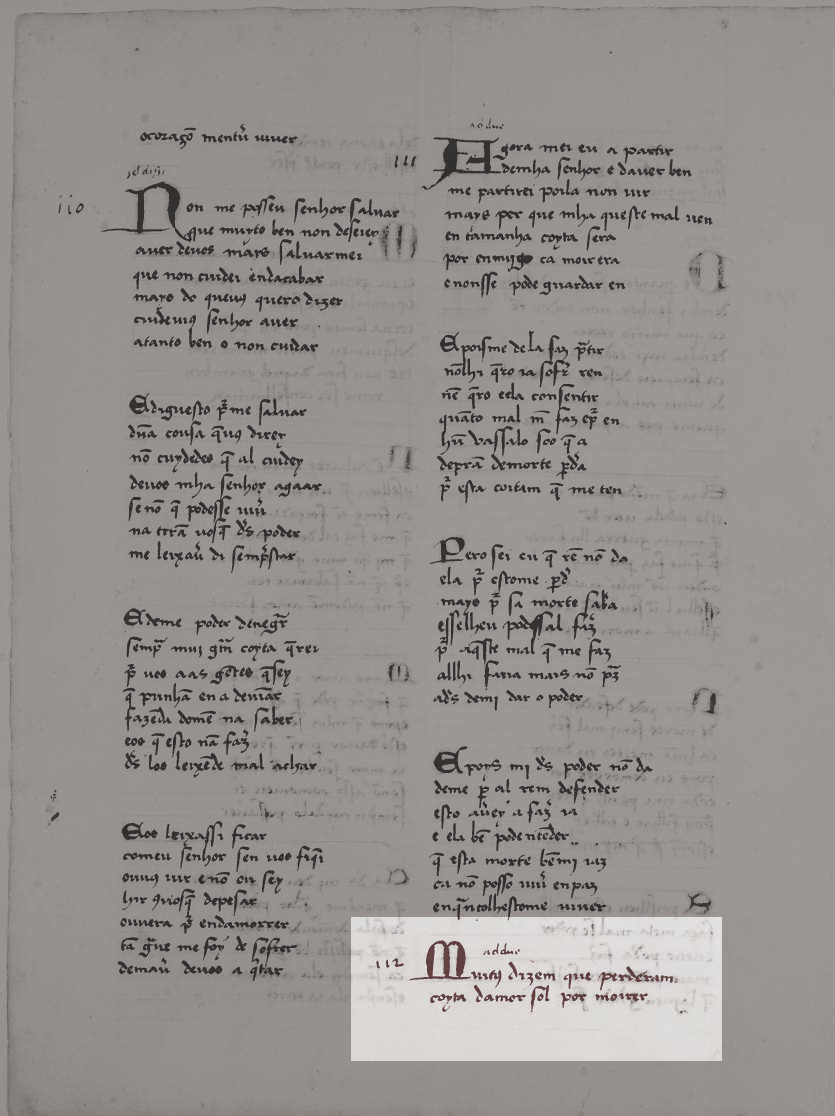 ocoraçō mentr̄ viver
110
Non me posseu senhor salvar
que muyto ben non deseiey
aver devos mays salvarmei
que non cuidei endacabar
mays do quevꝯ quero dizer
cuidevꝯ senhor aver
atanto ben o non cuidar
E diguesto pr̄ me salvar
dūa cousa q̄vꝯ direy
nō cuydedes q̄ al cuidey
devos mha senhor agaar
se nō q̄ podesse
na trrā vosq̄ ds̄ poder
me leixav̄ di
E deme poder denegr̄
semp̄ muj grā coyta q̄rei
pr̄ vos aas gētes q̄ sey
q̄ punhā en a deviār
fazēdā domē na saber
eos q̄ esto nā faz̄
ds̄ los leixēde mal achar
E los leixassi ficar
comeu senhor sen vos
ouvꝯ vir e nō eu sey
depesar
ouvera pr̄ endamorrer
tā gv̄e me foy de sofrer
demav̄ devos a q̄tar
111 addue
Agora mei eu a partir
demha senhor e daver ben
me partirei poila non vir
mays per que mha queste mal ven
en tamanha coyta sera
por enmigo ca moirera
enonsse pode guardar en
E poisme dela faz p̄tir
nōlhi q̄ro ia sofr̄ ren
nē q̄ro eela consentir
quāto mal m̄ faz epr̄ en
hū vassalo soo q̄ a
deprā demorte p̄da
pr̄ esta coitam q̄ me ten
Pero sei eu q̄ rē nō da
ela pr̄ estome p̄d̄
mays pr̄ sa morte sab̄a
esselheu podessal faz̄
pr̄ aq̄ste mal q̄ me faz
allhi faria mais nō pz̄
ads̄ demi dar o poder
E poys mi ds̄ poder nō da
deme p̄ al rem defender
esto av̄ey a faz̄ ia
e ela bē pode ntēder
q̄ esta morte bēmi iaz
ca nō posso viv̄ en paz
enq̄ntolhestome viver
112 adduc
Muitꝯ dizem que perderam
coyta damor sol por moirer